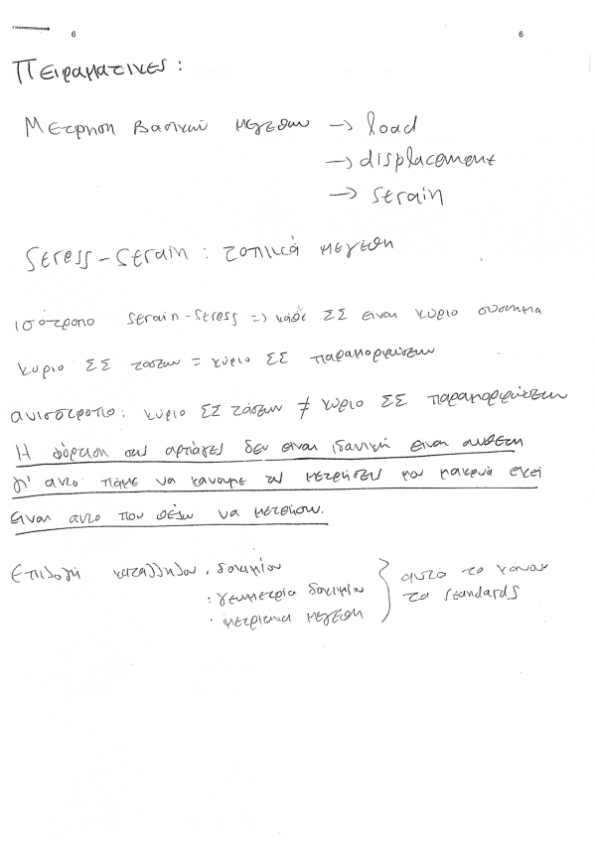 6 6
Πειραματικες :
Μετρηση βασικων μεγεθων → load
→ displacement
→ strain
Stress-strain : τοπικά μεγέθη
ισότροπο strain-stress => κάθε ΣΣ ειναι κύριο συστημα
κυριο ΣΣ τάσεων = κύριο ΣΣ παραμορφώσεων
ανισότροπο: κύριο ΣΣ τάσεων ≠ κύριο ΣΣ παραμορφώσεων
Η φόρτιση στις αρπάγες δεν ειναι ιδανική ειναι συνθετη
γι' αυτο πάμε να κανουμε τις μετρήσεις μακρυά εκεί
ειναι αυτο που θέλω να μετρήσω.
Επιλογή καταλληλου . δοκιμίου
: γεωμετρία δοκιμίου } αυτό το κανουν
. μεγεθη τα standards